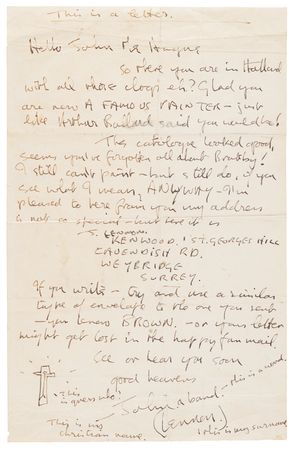 This is a letter.
Hello John Mc Hague
So there you are in Holland
with all those clogs eh? Glad you
are now A FAMOUS PAINTER – just
like Arthur Ballard said you would be!
The catalogue looked good,
seems you've forgotten all about Bratby!
I still can't paint – but still do, if you
see what I mean, ANYWAY – I'm
pleased to here from you my address
is not a special – but here it is
J. LENNON.
KENWOOD. 1 ST. GEORGES HILL
CAVENDISH RD.
WEYBRIDGE
SURREY.
If you write – try and use a similar
type of envelope to the one you sent
– you know BROWN. – or your letter
might get lost in the happy fan mail
See or hear you soon
good heavens
this is guess who?
John a band – this is a word.
(Lennon)
This is my christian name.
this is my surname